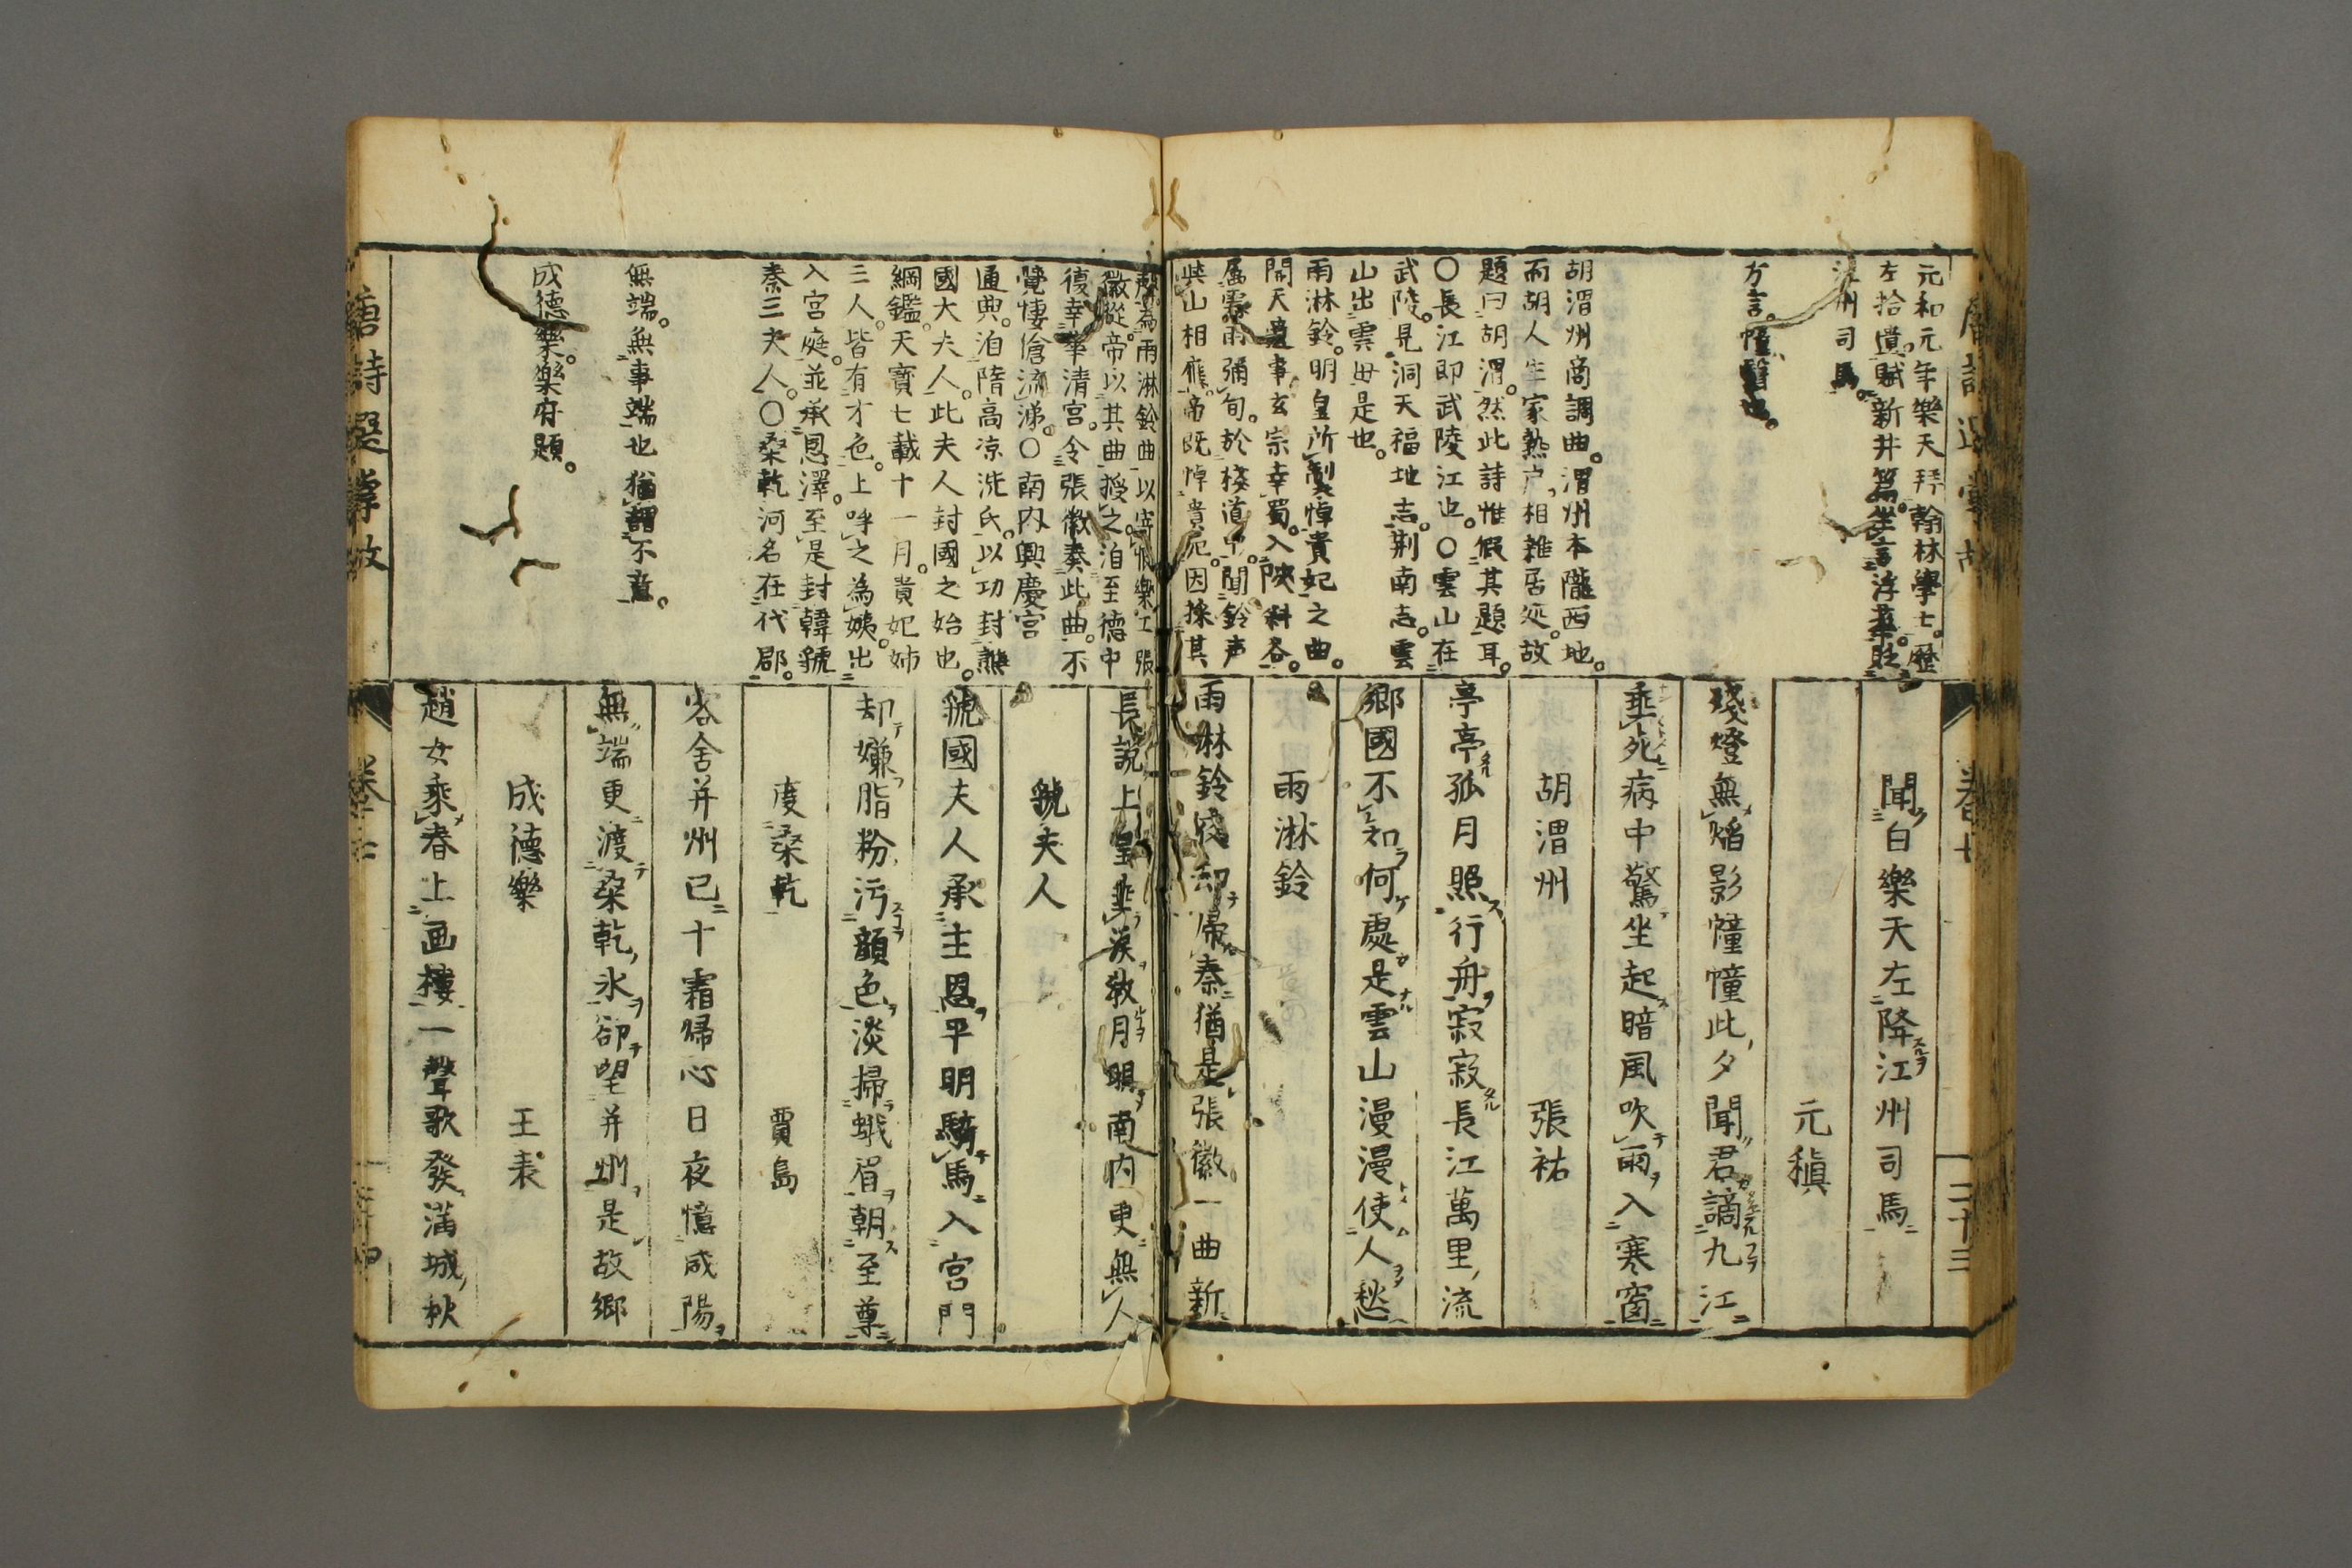 元和元年樂天拜翰林學士。歷
左拾遺。賦新井篇。坐言浮華。貶
江州司馬。
方言。幢翳也。
胡渭州商調曲。渭州本隴西地。
而胡人生家熟户相雜居処。故
題曰胡渭。然此詩惟假其題耳。
〇長江即武陵江也。〇雲山在
武陵。見洞天福地志。荆南志。雲
山出雲母是也。
雨淋鈴。明皇所製悼貴妃之曲。
開天遺事玄宗幸蜀。入陜斜谷。
屬霖雨彌旬。於棧道中。聞鈴声
與山相應。帝既悼貴妃。因採其
聞白樂天左降江州司馬
元稹
殘燈無焰影幢幢此夕聞君謫九江
垂死病中驚坐起暗風吹雨入寒窗
胡渭州
張祐
亭亭孤月照行舟寂寂長江萬里流
鄉國不知何處是雲山漫漫使人愁
雨淋鈴
雨淋鈴夜却歸秦猶是張徽一曲新
卷七
二十三
聲為雨淋鈴曲以寄恨樂工張
徽從帝以其曲授之。洎至德中
復幸華清宮。令張徽奏此曲。不
覺悽愴流涕。〇南内興慶宮
通典。洎隋高凉洗氏。以功封譙
國大夫人。此夫人封國之始也。
綱鑑。天寶七載十一月。貴妃姉
三人。皆有才色。上呼之為姨。出
入宮庭。並承恩澤。至是封韓虢
秦三夫人。〇桑乾河名在代郡。
無端。無事端也猶謂不意。
成德樂。樂府題。
長說上皇垂淚教月明南内更無人
虢夫人
虢國夫人承主恩平明騎馬入宮門
却嫌脂粉污顏色淡掃蛾眉朝至尊
度桑乾
賈島
客舍并州已十霜歸心日夜憶咸陽
無端更渡桑乾水卻望并州是故鄉
成德樂
王表
趙女乘春上画樓一聲歌發滿城秋